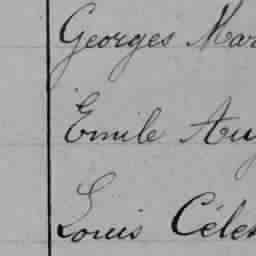 Georges Mar
Emile Au
Louis Céle